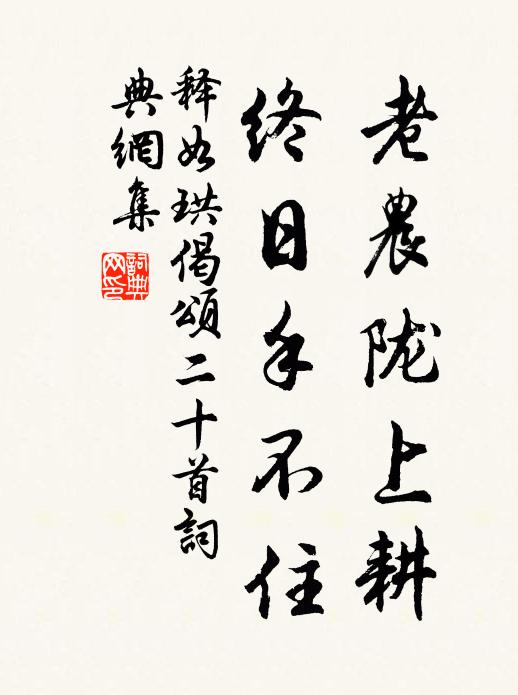 老農陇上耕
終日手不住
释如珙偈頌二十首詞
典網集
詞典
网印